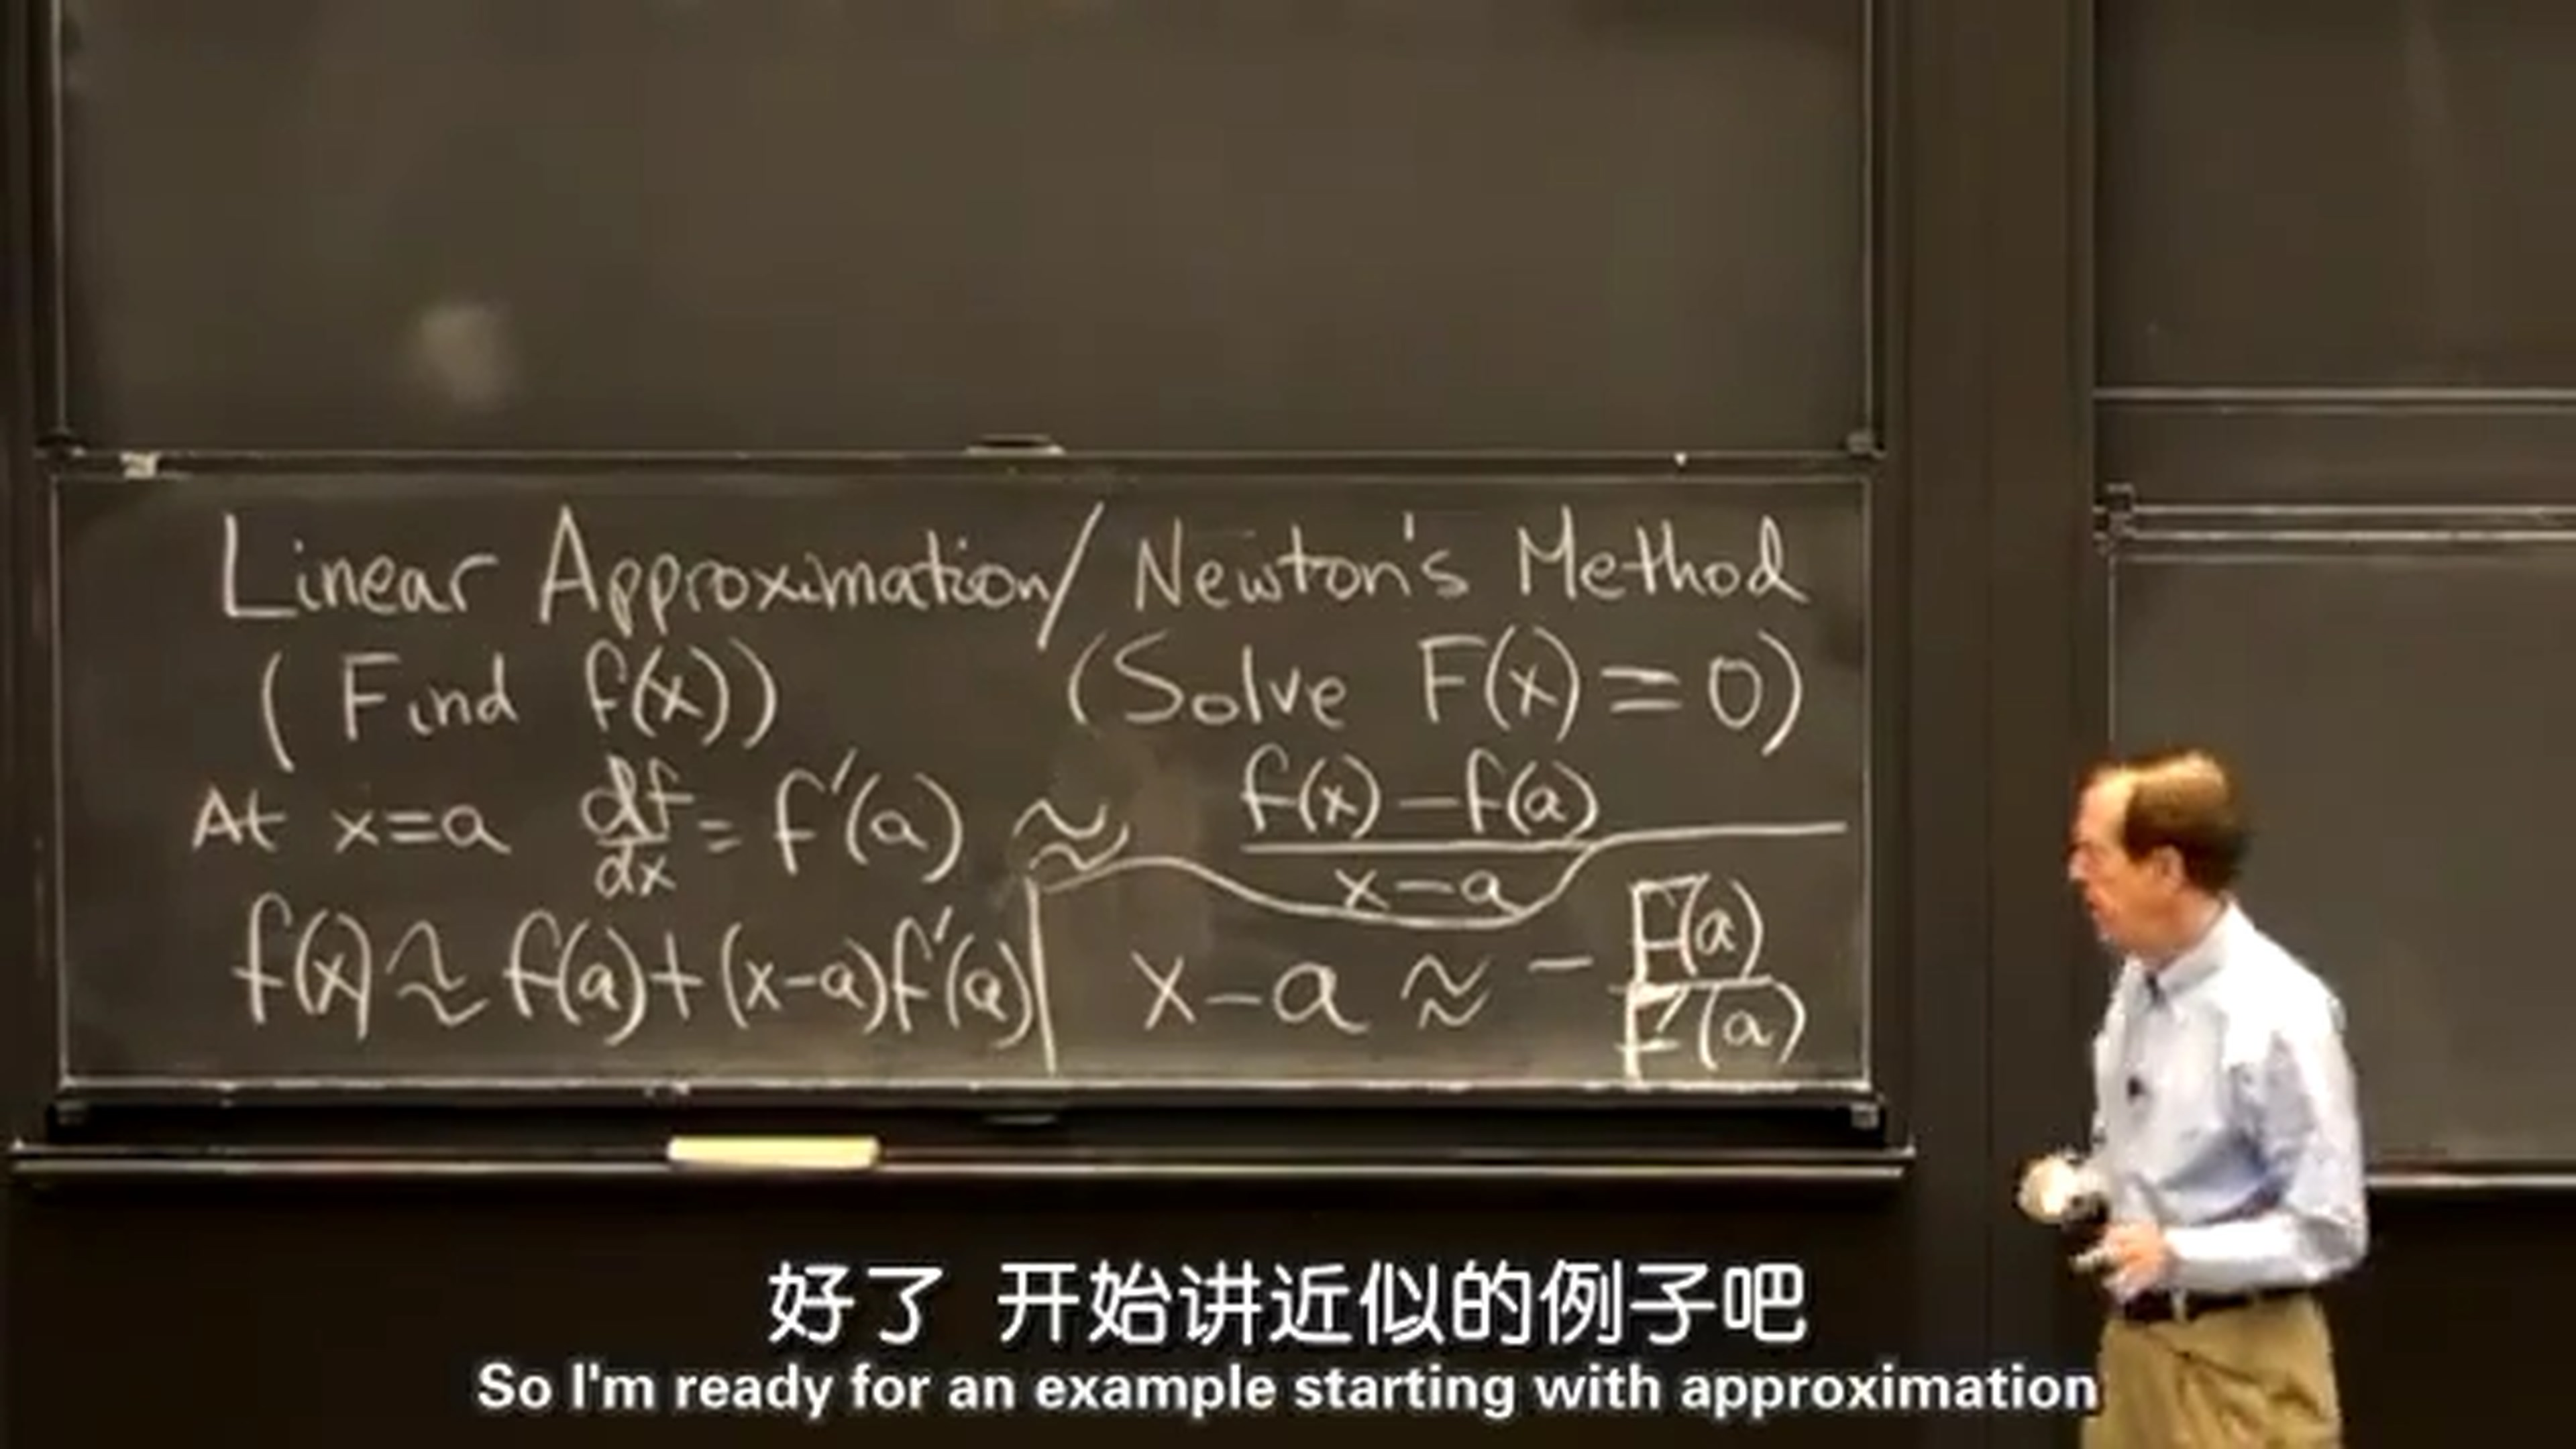 Linear Approximation/ Newton's Method
(Find f(x)) (Solve F(x)=0)
At x=a df/dx = f'(a) ≈ f(x)-f(a)/x-a
f(x)≈f(a)+(x-a)f'(a) x-a ≈ - F(a)/F'(a)
好了 开始讲近似的例子吧
So I'm ready for an example starting with approximation